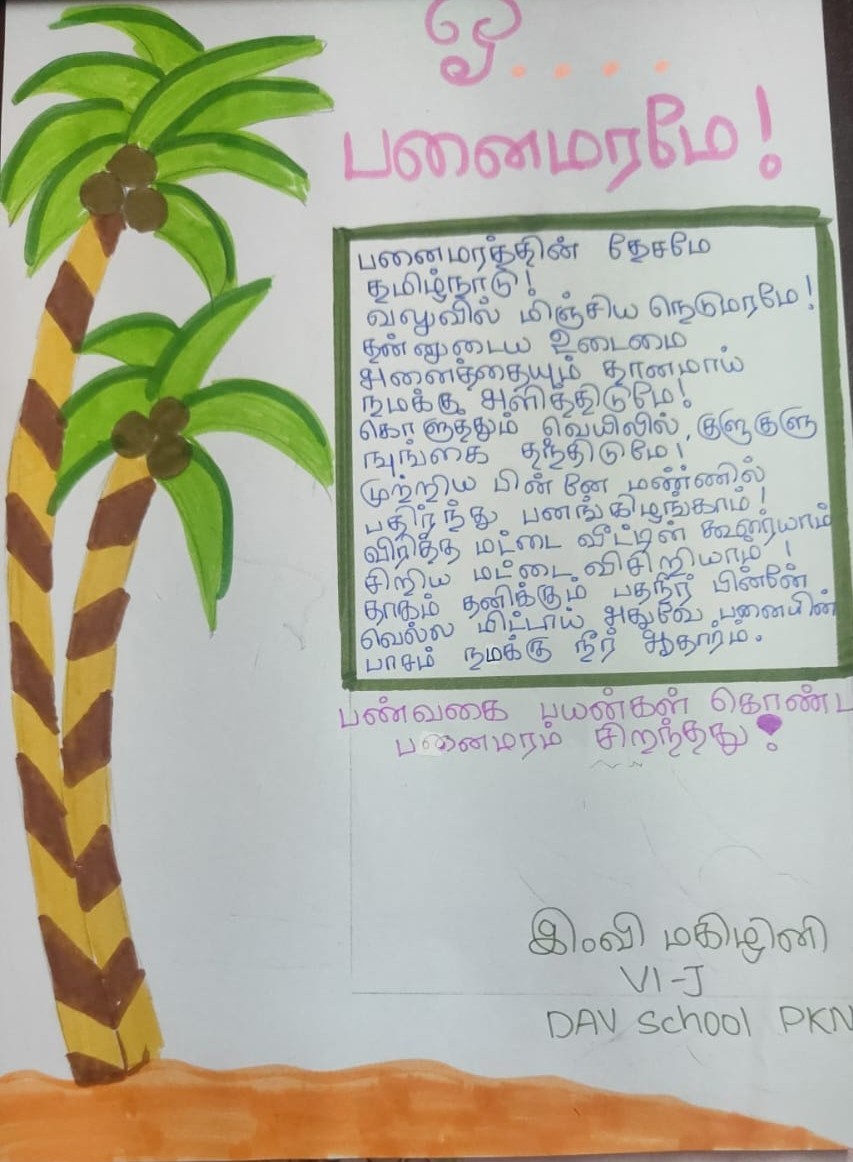 ஓ....
பனைமரமே!
பனைமரத்தின் தேசமே
தமிழ்நாடு!
வலுவில் மிஞ்சிய நெடுமரமே!
தன்னுடைய உடைமை
அனைத்தையும் தானமாய்
நமக்கு அளித்திடுமே!
கொளுத்தும் வெயிலில், குளுகுளு
நுங்கை தந்திடுமே!
முற்றிய பின்னே மண்ணில்
பதிர்ந்து பனங்கிழங்காம்!
விரித்த மட்டை வீட்டின் கூரையாம்
சிறிய மட்டை விசிறியாம்!
தாகம் தனிக்கும் பதநீர் பின்னே
வெல்ல மிட்டாய் அதுவே பனையின்
பாசம் நமக்கு நீர் ஆதாரம்.
பண்வகை பயன்கள் கொண்ட
பனைமரம் சிறந்தது!
இ.வி மகிழினி
VI-J
DAV School PKN